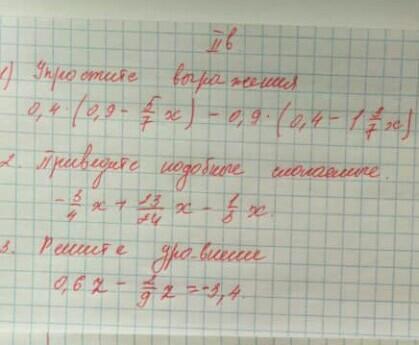 IIв
1) Упростите выражения
0,4·(0,9 - 5/7 x) - 0,9·(0,4 - 1 3/7 x)
2. Приведите подобные слагаемые.
-3/4 x + 13/24 x - 1/8 x.
3. Решите уравнение
0,6 z - 2/9 z = -3,4.